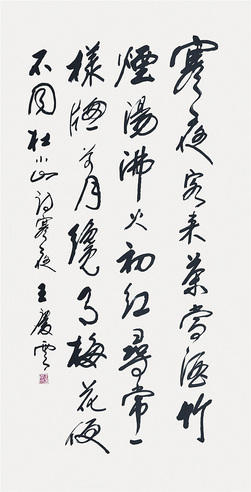 寒夜客来茶當酒竹
爐湯沸火初紅尋常一
樣牕前月纔有梅花便
不同杜小山詩寒夜王慶雲